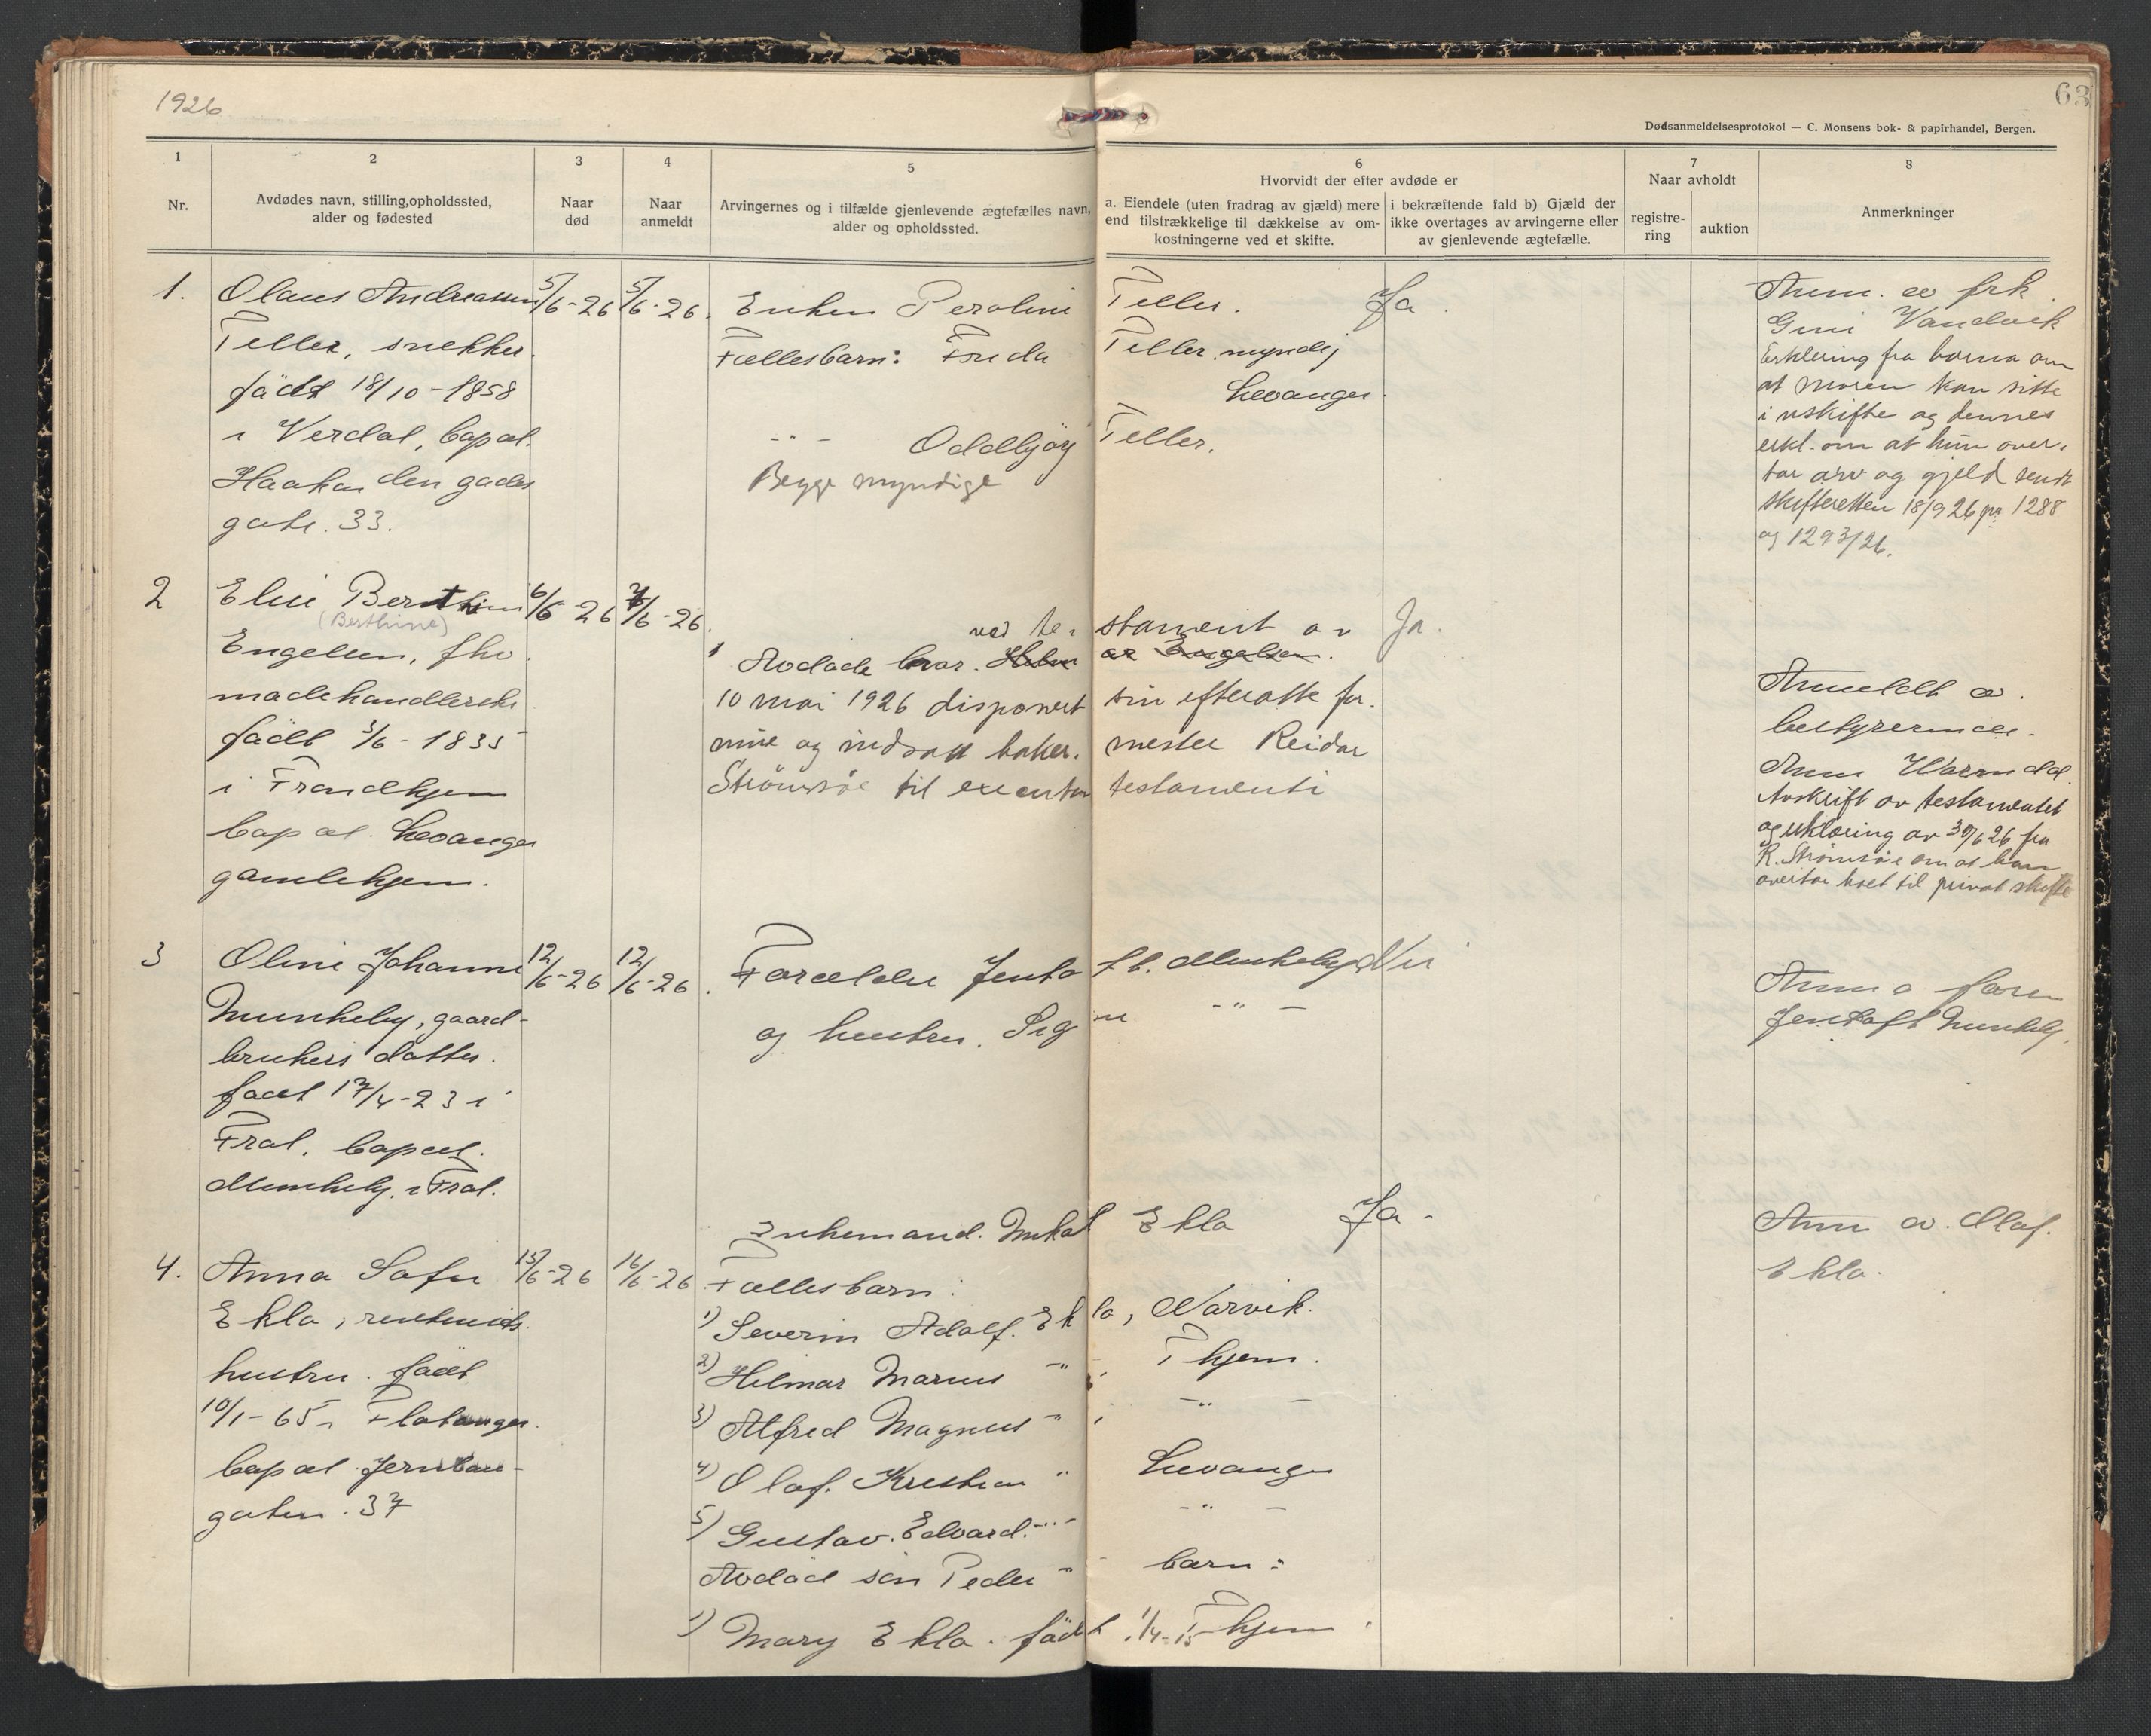 1926
63
Dødsanmeldelsesprotokol — C. Monsens bok- & papirhandel, Bergen.
1
2
3
4
5
6
7
8
Nr.
Avdødes navn, stilling, opholdssted,
alder og fødested
Naar
død
Naar
anmeldt
Arvingernes og i tilfælde gjenlevende ægtefælles navn,
alder og opholdssted.
Hvorvidt der efter avdøde er
a. Eiendele (uten fradrag av gjæld) mere
end tilstrækkelige til dækkelse av om-
kostningerne ved et skifte.
i bekræftende fald b) Gjæld der
ikke overtages av arvingerne eller
av gjenlevende ægtefælle.
Naar avholdt
registre-
ring
auktion
Anmerkninger
1.
Olaus Andreassen
Teller, snekker.
födt 18/10-1858
i Verdal, bopæl.
Haakon den godes
gate. 33.
5/6-26
5/6-26.
Enken Peroline Teller.
Fællesbarn: Frida Teller, myndig
Levanger.
-"- Oddbjörg Teller.
Begge myndige
Ja.
Anm. av frk.
Vandvik
Erklæring fra barna om
at moren kan sitte
i uskifte og dennes
erkl. om at hun over-
tar arv og gjeld sendt
skifteretten 18/9 26 pr 1288
og 1293/26.
2
Berthine
(Berthine)
Engelsen, fhv.
madehandlerske
födt 3/6-1835
i Trondhjem
bopæl Levanger
gamlehjem.
6/6-26
7/6-26.
ved testament av
Avdöde har
10 mai 1926 disponert sin efterlatte for-
mue og indsatt baker- mester Reidar
Strömsöe til executor testamenti
Ja.
Anmeldt av
bestyrerinden
Avskrift av testamentet
og erklæring av 30/6 26 fra
R. Strömsöe om at han
overtar boet til privat skifte
3
Oline Johanne
Munkeby, gaard-
brukers datter.
födt 17/4-23 i
Frol. bopæl.
Munkeby i Frol.
12/6-26
12/6-26.
Forældre Jentoft Munkeby
og hustru Signe -"-
Nei
Anm a faren
Jentoft Munkeby.
4.
Anna Sofie
Ekla, rentenists
hustru. födt
10/1-65 i Flatanger.
bopæl Jernban-
gaten. 37
15/6-26
16/6-26
Enkemand. Mikal Ekla
Fællesbarn:
1) Severin Adolf. Ekla, Narvik.
2) Hilmar Marius -"- Thjem.
3) Alfred Magnus -"- -"-
4) Olaf. Kristian " Levanger
5) Gustav. Edvard. -"- -"-
Avdöd sön Peder -"- barn:
1) Mary Ekla. födt 1/4-15 Thjem
Ja-
Anm av. Olaf.
Ekla.